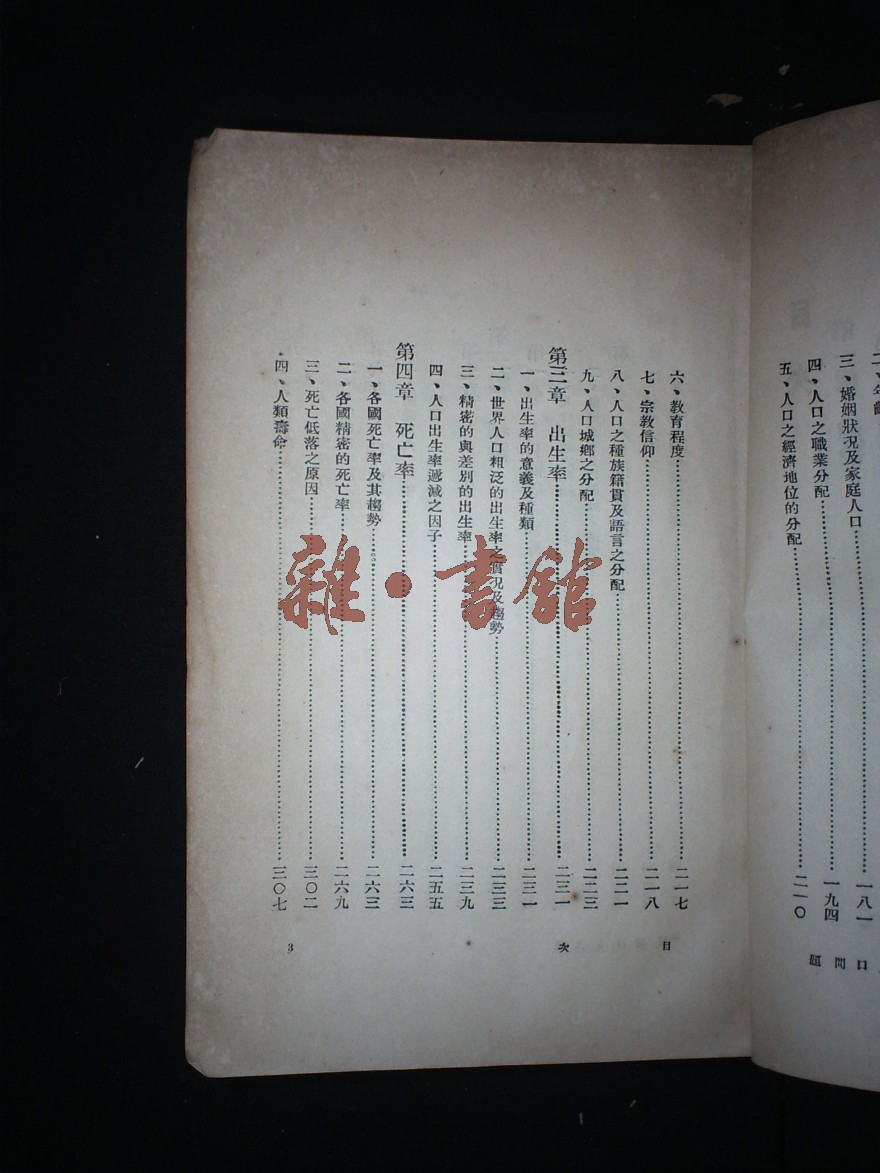 三、婚姻狀況及家庭人口 一八一
四、人口之職業分配 一九四
五、人口之經濟地位的分配 二一〇
口問題
六、教育程度 二一七
七、宗教信仰 二一八
八、人口之種族籍貫及語言之分配 二二一
九、人口城鄉之分配 二二三
第三章 出生率 二三一
一、出生率的意義及種類 二三一
二、世界人口粗泛的出生率之實況及趨勢 二三三
三、精密的與差別的出生率 二三九
四、人口出生率遞減之因子 二五五
第四章 死亡率 二六三
一、各國死亡率及其趨勢 二六三
二、各國精密的死亡率 二六九
三、死亡低落之原因 三〇二
四、人類壽命 三〇七
目次
3
雜·書館